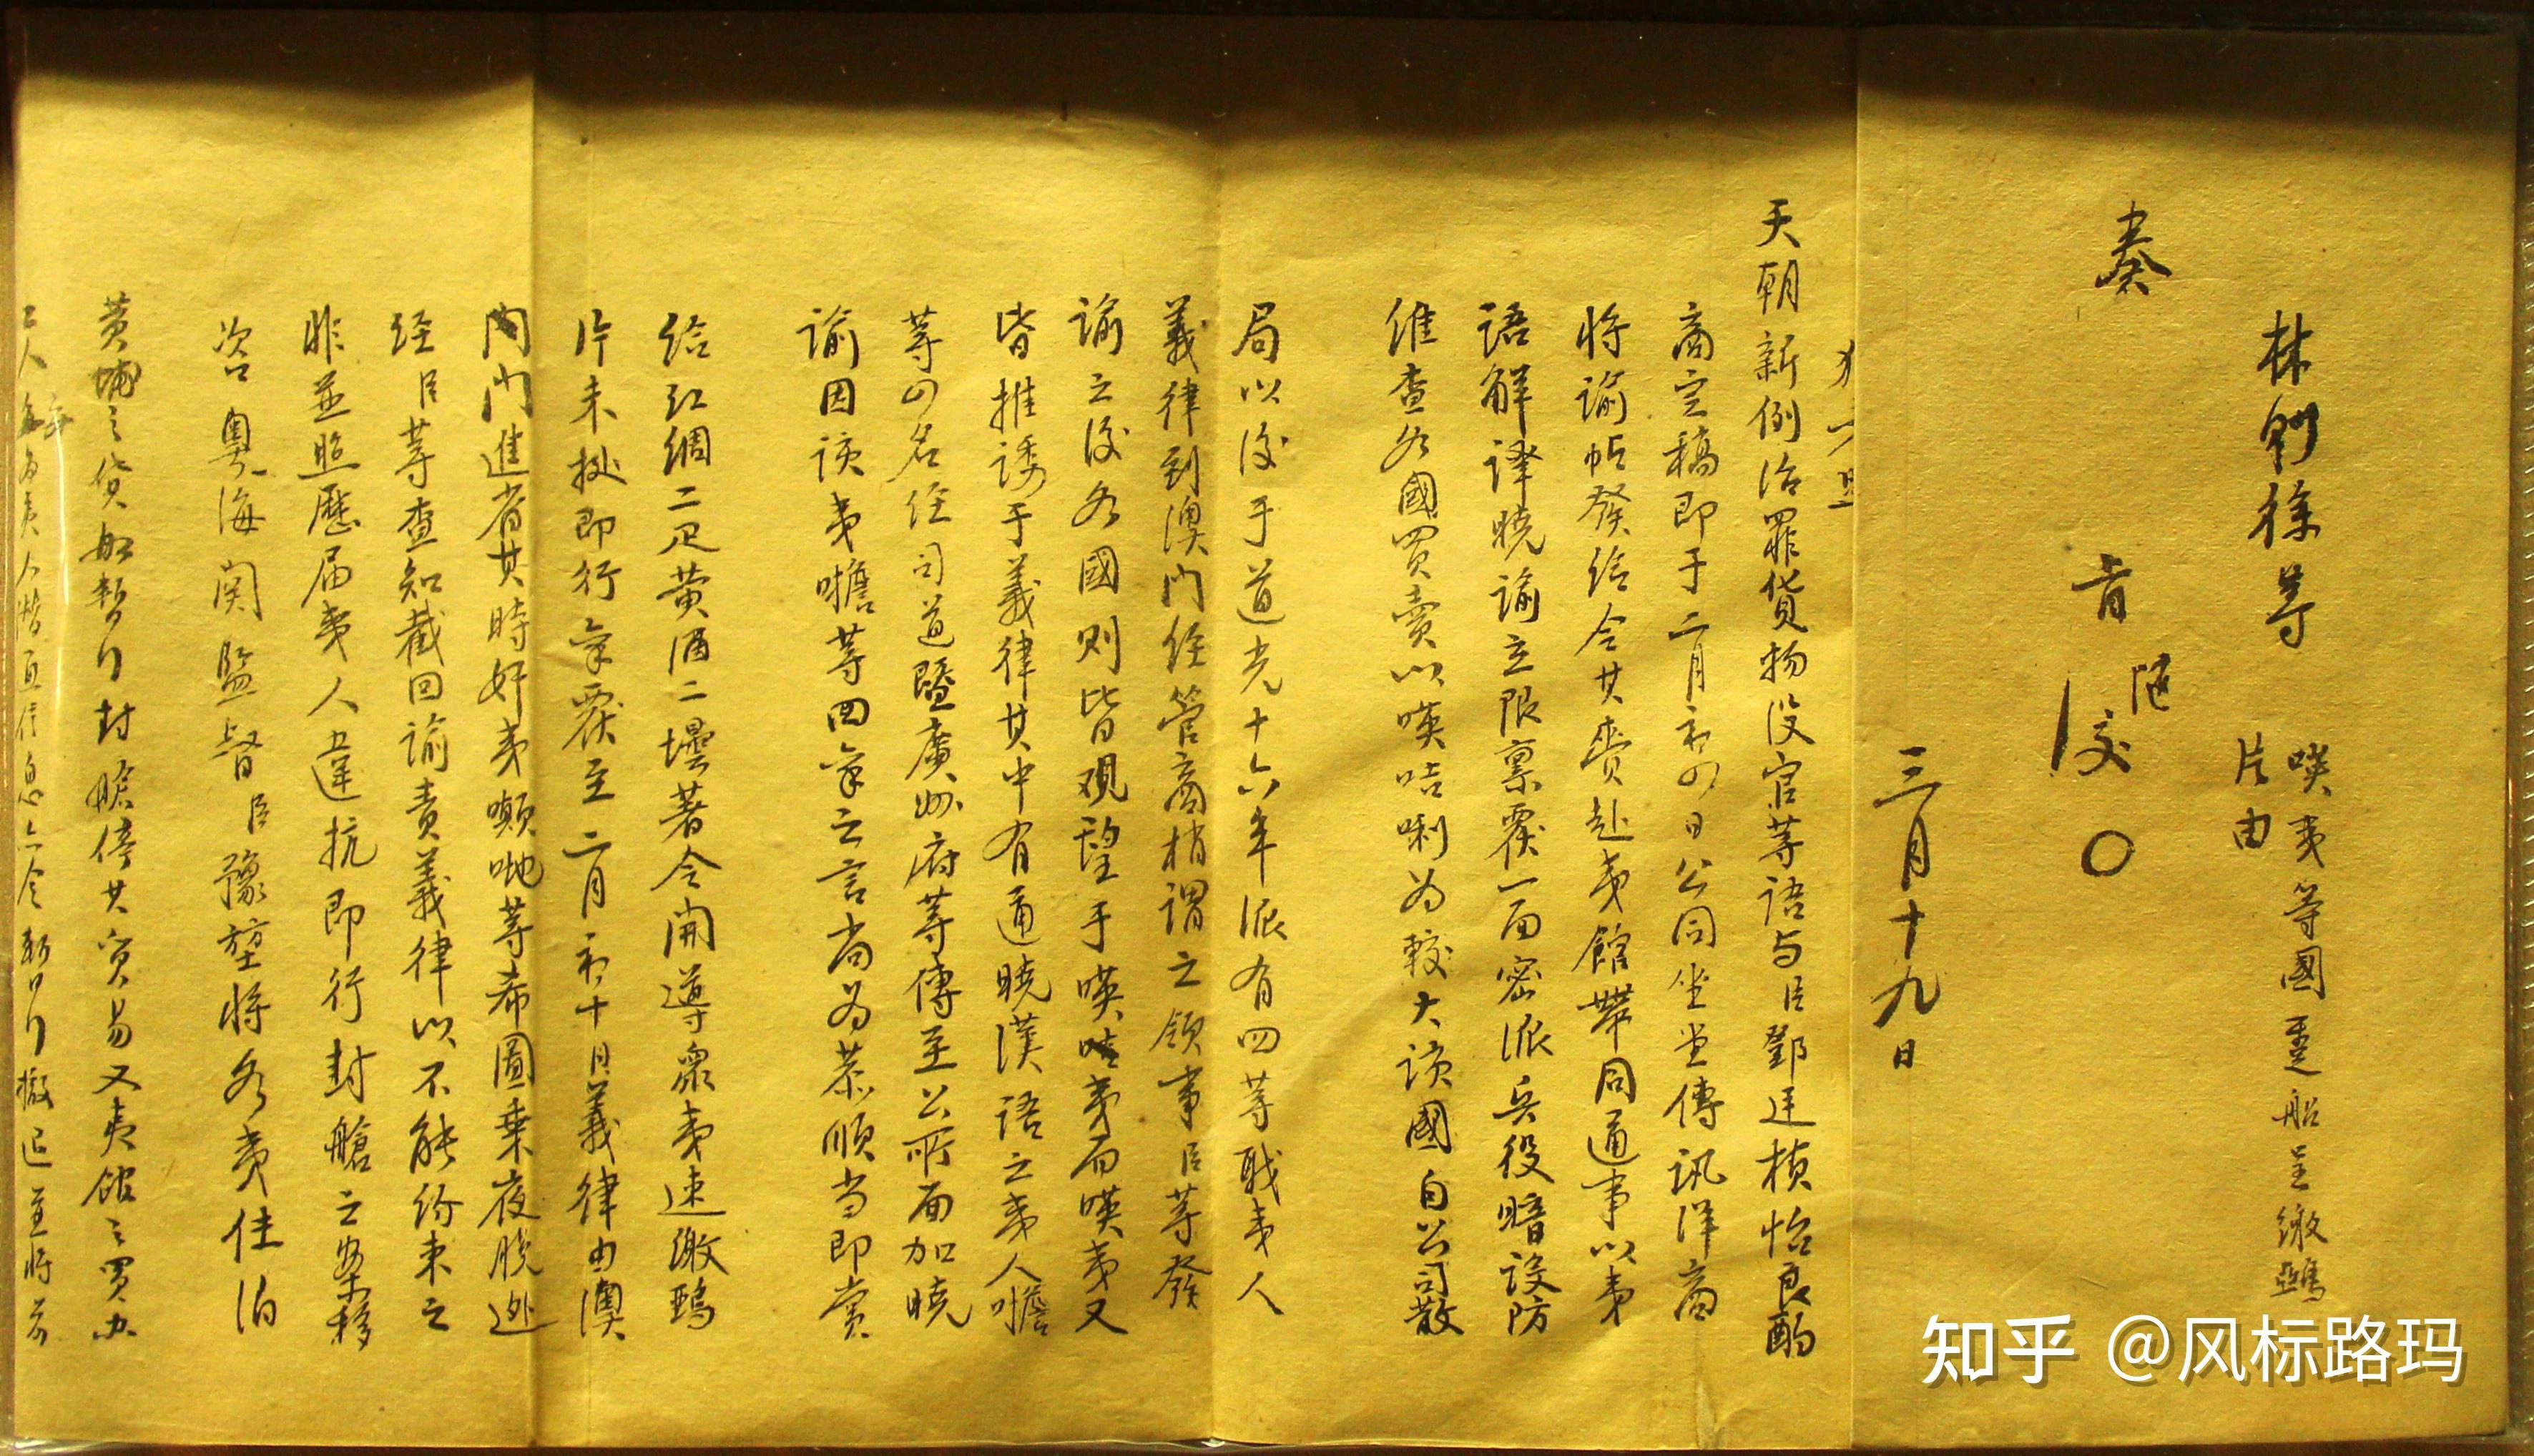 林則徐等
嘆夷等國躉船呈繳鴉
片由
奏
旨
随
交
〇
三月十九日
天朝新例治罪貨物没官等語与臣鄧廷楨怡良酌
商定稿即于二月初四日公同坐堂傳訊洋商
将諭帖發給令其賫赴夷館帶同通事以夷
語解譯曉諭立限禀覆一面密派兵役暗設防
維查各國買賣以嘆咭唎为較大該國自公司散
局以後于道光十六年派有四等戢夷人
義律到澳門経管商梢謂之領事臣等發
諭之後各國則皆观望于嘆咭夷而嘆夷又
皆推諉于義律其中有通曉漢語之夷人噡
等四名経司道暨廣州府等傳至公所面加曉
諭因該夷噡等四等之言尚为恭順当即賞
給红綢二疋黄酒二壜著令開導衆夷速繳鴉
片未据即行禀覆至二月初十日義律由澳
門進省其時奸夷噸哋等希圖乗夜脱逃
経臣等查知截回諭責義律以不能约束之
非並照歷届夷人違抗即行封艙之案移
咨粤海関監督臣豫堃将各夷住泊
黄埔之貨船暫行封艙停其貿易又夷館之買办
工人每为夷人潜通信息亦令暫行撤退並将前
知乎 @风标路玛